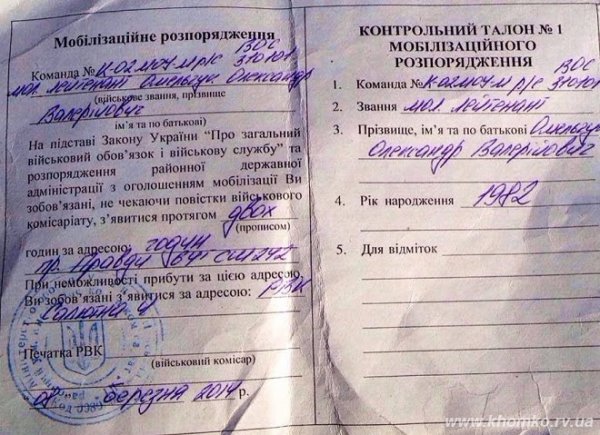 Мобілізаційне розпорядження
ВОС
Команда № К-02 310101
мол. лейтенант Олександр
(військове звання, прізвище
Валерійович
ім'я та по батькові)
На підставі Закону України “Про загальний
військовий обов'язок і військову службу” та
розпорядження районної державної
адміністрації з оголошенням мобілізації Ви
зобов'язані, не чекаючи повістки військового
комісаріату, з'явитися протягом двох
(прописом)
годин за адресою: годин
пр. Правди
При неможливості прибути за цією адресою,
Ви зобов'язані з'явитися за адресою: РВК
Печатка РВК
(військовий комісар)
березня 2014 р.
КОНТРОЛЬНИЙ ТАЛОН № 1
МОБІЛІЗАЦІЙНОГО
РОЗПОРЯДЖЕННЯ
ВОС
1. Команда № К-02 310101
2. Звання мол. лейтенант
3. Прізвище, ім'я та по батькові
Олександр Валерійович
4. Рік народження 1982
5. Для відміток
www.khomko.rv.ua